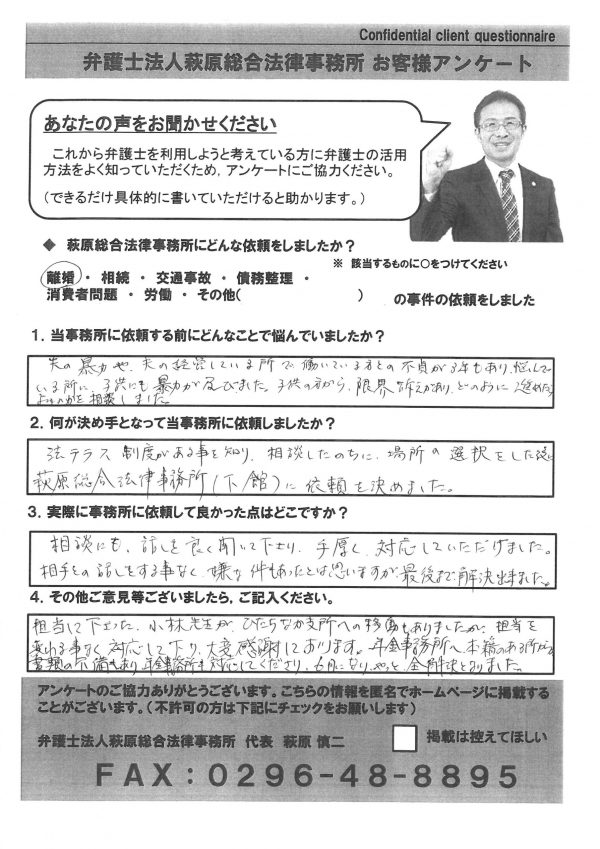 Confidential client questionnaire
弁護士法人萩原総合法律事務所 お客様アンケート
あなたの声をお聞かせください
これから弁護士を利用しようと考えている方に弁護士の活用
方法をよく知っていただくため，アンケートにご協力ください。
（できるだけ具体的に書いていただけると助かります。）
◆ 萩原総合法律事務所にどんな依頼をしましたか？
※ 該当するものに○をつけてください
離婚 ・ 相続 ・ 交通事故 ・ 債務整理 ・
消費者問題 ・ 労働 ・ その他（ ） の事件の依頼をしました
1．当事務所に依頼する前にどんなことで悩んでいましたか？
夫の暴力や、夫の経営している所で働いている方との不貞が3年もあり、悩んで
いる所に、子供にも暴力が及びました。子供の方から、限界の訴えがあり、どのように進めたら
よいのかを相談しました。
2．何が決め手となって当事務所に依頼しましたか？
法テラス制度がある事を知り、相談したのちに、場所の選択をした後に
萩原総合法律事務所(下館)に依頼を決めました。
3．実際に事務所に依頼して良かった点はどこですか？
相談にも、話しを良く聞いて下さり、手厚く、対応していただけました。
相手との話しをする事なく、嫌な件もあったとは思いますが最後まで解決出来ました。
4．その他ご意見等ございましたら，ご記入ください。
担当して下さった、小林先生が、ひたちなか支所への移動もありましたが、担当を
変わる事なく対応して下り、大変感謝しております。年金事務所へ本籍のある所から
書類の不備もあり、年金事務所も対応してくださり、6月になり、やっと、全解決となりました。
アンケートのご協力ありがとうございます。こちらの情報を匿名でホームページに掲載する
ことがございます。（不許可の方は下記にチェックをお願いします）
弁護士法人萩原総合法律事務所 代表 萩原 慎二
掲載は控えてほしい
FAX：0296-48-8895